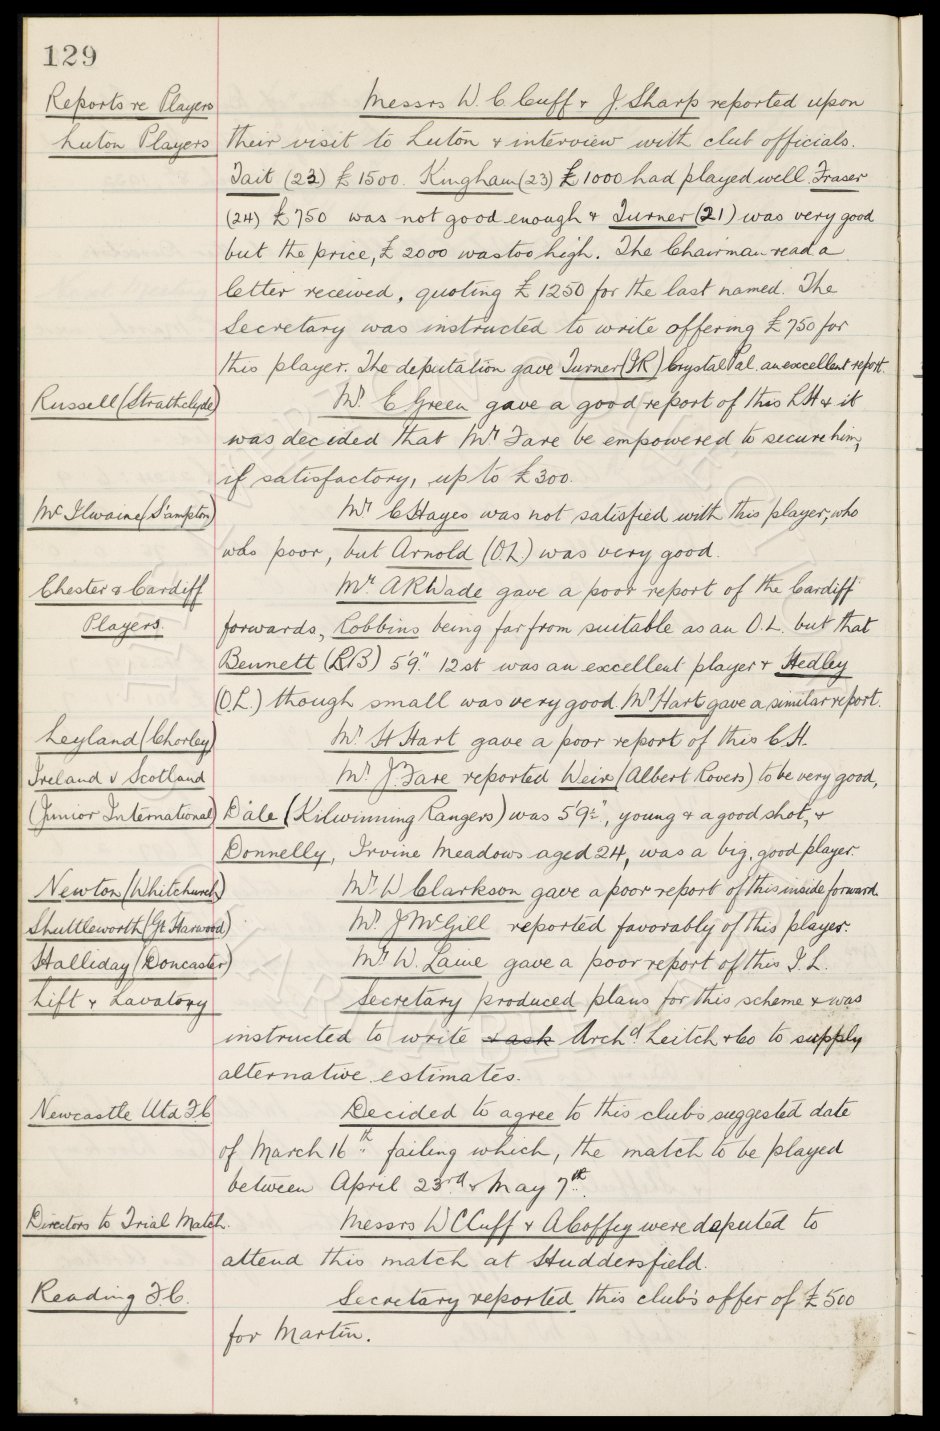 129
Reports re Players Messrs W. C Cuff & J. Sharp reported upon
Luton Players their visit to Luton & interview with club officials.
Tait (23) £1500. Kingham (23) £1000 had played well. Fraser
(24) £750 was not good enough & Turner (21) was very good
but the price, £2000 was too high. The Chairman read a
letter received, quoting £1250 for the last named. The
Secretary was instructed to write offering £750 for
this player. The deputation gave Turner (IR) Crystal Pal. an excellent report.
Russell (Strathclyde) Mr E Green gave a good report of this LH & it
was decided that Mr Fare be empowered to secure him,
if satisfactory, up to £300.
Mc Ilwaine (S'ampton) Mr C Hayes was not satisfied with this player, who
was poor, but Arnold (O.L.) was very good.
Chester & Cardiff Mr A R Wade gave a poor report of the Cardiff
Players. forwards, Robbins being far from suitable as an O.L. but that
Bennett (RB) 5'9" 12st was an excellent player & Hedley
(O.L.) though small was very good. Mr Hart gave a similar report.
Leyland (Chorley) Mr H Hart gave a poor report of this C.H.
Ireland v Scotland Mr J. Fare reported Weir (Albert Rovers) to be very good,
(Junior International) Dale (Kilwinning Rangers) was 5'9½", young & a good shot, &
Donnelly, Irvine Meadows aged 24, was a big, good player.
Newton (Whitchurch) Mr W Clarkson gave a poor report of this inside forward.
Shuttleworth (Gt Harwood) Mr J McGill reported favorably of this player.
Halliday (Doncaster) Mr W. Laine gave a poor report of this I.L.
Lift & Lavatory Secretary produced plans for this scheme & was
instructed to write & ask Archd Leitch & Co to supply
alternative estimates.
Newcastle Utd F.C Decided to agree to this club's suggested date
of March 16th failing which, the match to be played
between April 23rd & May 7th.
Directors to Trial Match. Messrs W C Cuff & A Coffey were deputed to
attend this match at Huddersfield.
Reading F.C. Secretary reported this club's offer of £500
for Martin.